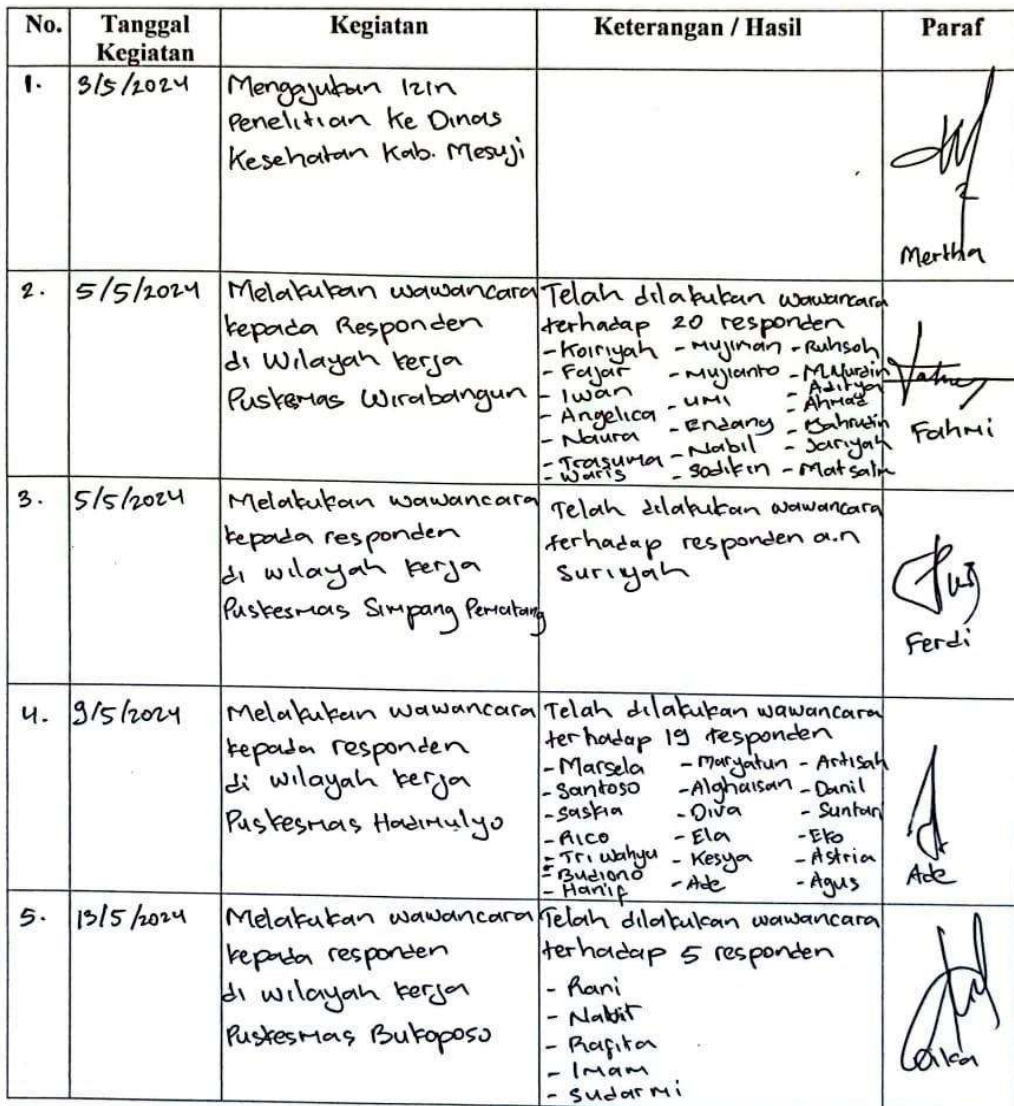 No. Tanggal Kegiatan Kegiatan Keterangan / Hasil Paraf
1. 3/5/2024
Mengajukan Izin
Penelitian Ke Dinas
Kesehatan Kab. Mesuji
Mertha
2. 5/5/2024
Melakukan wawancara
kepada Responden
di Wilayah kerja
Puskesmas Wirabangun
Telah dilakukan wawancara
terhadap 20 responden
- Koiriyah - Mujiman - Ruhsoh
- Fajar - Mujianto - M.Nurdin
- Aditya
- Iwan - Umi - Ahmad
- Angelica - Endang - Bahrudin
- Naura - Nabil - Jariyah
- Trasuma - Sodikin - Matsalim
- Waris
Fahmi
3. 5/5/2024
Melakukan wawancara
kepada responden
di wilayah kerja
Puskesmas Simpang Pematang
Telah dilakukan wawancara
terhadap responden a.n
Suriyah
Ferdi
4. 9/5/2024
Melakukan wawancara
kepada responden
di wilayah kerja
Puskesmas Hadimulyo
Telah dilakukan wawancara
terhadap 19 responden
- Marsela - Maryatun - Artisah
- Santoso - Alghaisan - Danil
- Saskia - Diva - Suntari
- Rico - Ela - Eko
- Tri Wahyu - Kesya - Astria
- Budiono - Ade - Agus
- Hanif
Ade
5. 13/5/2024
Melakukan wawancara
kepada responden
di wilayah kerja
Puskesmas Bukoposo
Telah dilakukan wawancara
terhadap 5 responden
- Rani
- Nabit
- Rafita
- Imam
- Sudarmi